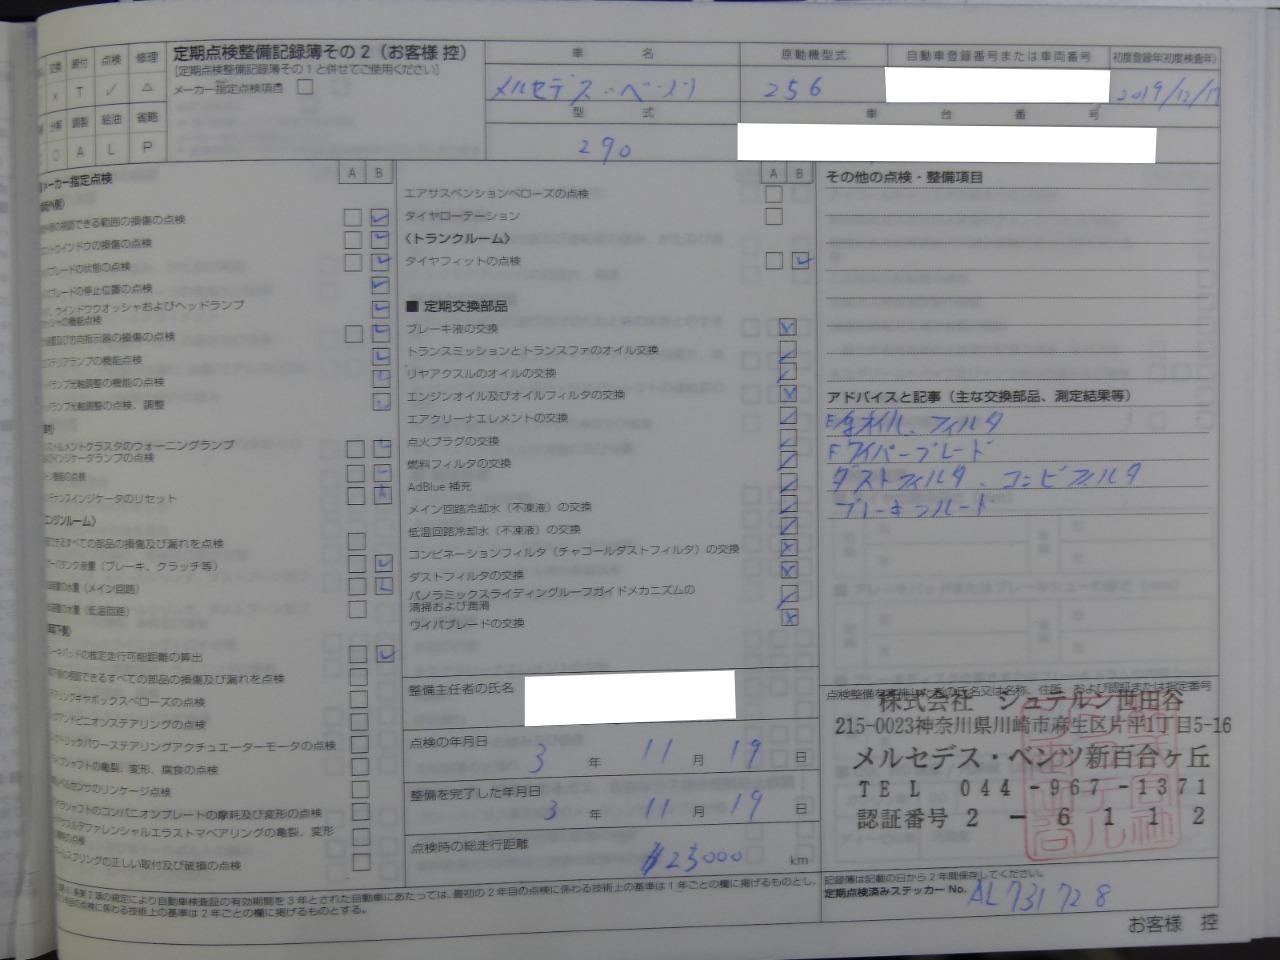 交換 締付 点検 修理
× T ✓ △
分解 調整 給油 省略
O A L P
定期点検整備記録簿その2(お客様 控)
[定期点検整備記録簿その1と併せてご使用ください]
メーカー指定点検項目
車 名
メルセデス・ベンツ
原動機型式
256
自動車登録番号または車両番号
初度登録年(初度検査年)
2019/12/17
型 式
290
車 台 番 号
メーカー指定点検
A B
できる範囲の損傷の点検
ウインドウの損傷の点検
ブレードの状態の点検
ブレードの停止位置の点検
ウインドウウオッシャおよびヘッドランプ
の機能点検
及び方向指示器の損傷の点検
テリアランプの機能点検
ランプ光軸調整の機能の点検
ランプ光軸調整の点検、調整
ストルメントクラスタのウォーニングランプ
インジケータランプの点検
機能の点検
テナンスインジケータのリセット A
ンジンルーム〉
できるすべての部品の損傷及び漏れを点検
ーバタンク液量(ブレーキ、クラッチ等)
の水量(メイン回路)
の水量(低温回路)
ーキパッドの推定走行可能距離の算出
できるすべての部品の損傷及び漏れを点検
アリングギヤボックスベローズの点検
アンドピニオンステアリングの点検
クトリックパワーステアリングアクチュエーターモータの点検
シャフトの亀裂、変形、腐食の点検
レベルセンサのリンケージ点検
ラシャフトのコンパニオンプレートの摩耗及び変形の点検
クスルデファレンシャルエラストマベアリングの亀裂、変形
の点検
ルスプリングの正しい取付及び破損の点検
A B
エアサスペンションベローズの点検
タイヤローテーション
〈トランクルーム〉
タイヤフィットの点検
■ 定期交換部品
ブレーキ液の交換
トランスミッションとトランスファのオイル交換
リヤアクスルのオイルの交換
エンジンオイル及びオイルフィルタの交換
エアクリーナエレメントの交換
点火プラグの交換
燃料フィルタの交換
AdBlue 補充
メイン回路冷却水(不凍液)の交換
低温回路冷却水(不凍液)の交換
コンビネーションフィルタ(チャコールダストフィルタ)の交換
ダストフィルタの交換
パノラミックスライディングルーフガイドメカニズムの
清掃および潤滑
ワイパブレードの交換
整備主任者の氏名
点検の年月日
3 年 11 月 19 日
整備を完了した年月日
3 年 11 月 19 日
点検時の総走行距離
23000 km
その他の点検・整備項目
アドバイスと記事(主な交換部品、測定結果等)
オイル、フィルタ
F ワイパーブレード
ダストフィルタ、コンビフィルタ
ブレーキフルード
点検整備を実施した者の氏名又は名称、住所、および認証または指定番号
株式会社 シュテルン世田谷
215-0023神奈川県川崎市麻生区片平1丁目5-16
メルセデス・ベンツ新百合ヶ丘
TEL 044-967-1371
認証番号 2-6112
記録簿は記載の日から2年間保存してください。
定期点検済みステッカー No. AL731728
第2項の規定により自動車検査証の有効期間を3年とされた自動車にあたっては、最初の2年目の点検に係わる技術上の基準は1年ごとの欄に掲げるものとし、
目の点検に係わる技術上の基準は2年ごとの欄に掲げるものとする。
お客様 控